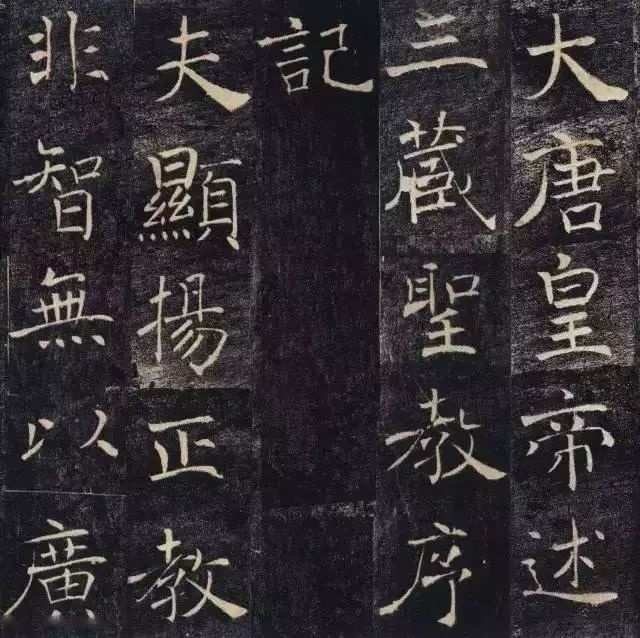 大唐皇帝述
三藏聖教序
記
夫顯揚正教
非智無以廣